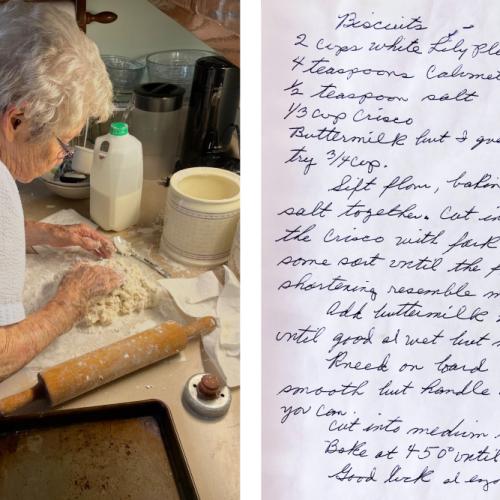 Biscuits
2 cups White Lily
4 teaspoons Calumet
1/2 teaspoon salt
1/3 cup Crisco
Buttermilk but I
try 3/4 cup.
Sift flour,
salt together. Cut in
the Crisco with fork
some sort until the
shortening resemble
Add buttermilk
until good & wet but
Knead on board
smooth but handle
you can.
Cut into medium
Bake at 450° until
Good luck &